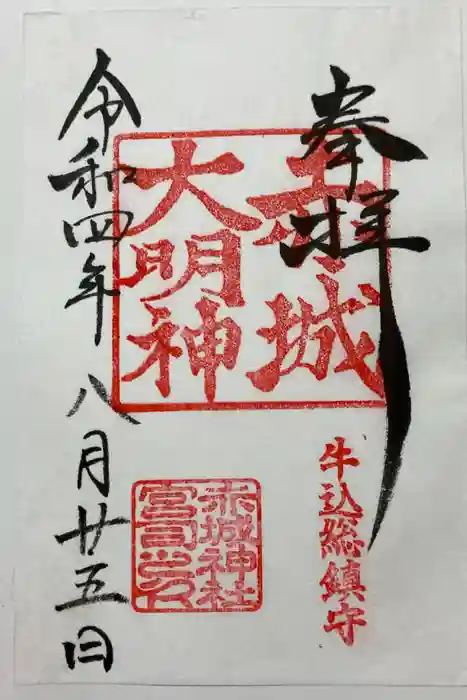 奉拝
赤城
大明神
牛込総鎮守
赤城神社
宮司之印
令和四年八月廿五日